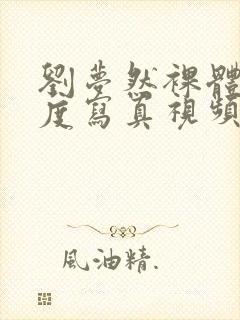 劉夢然裸體
度寫真視頻
風油精.